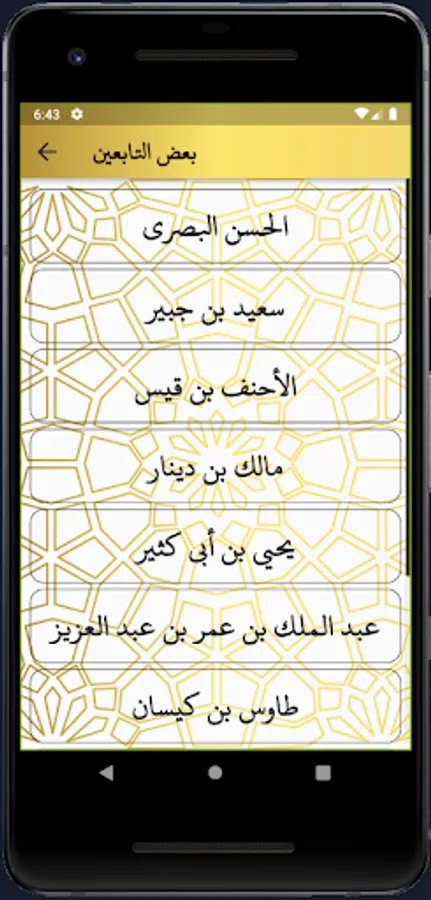 6:43
بعض التابعين
الحسن البصرى
سعيد بن جبير
الأحنف بن قيس
مالك بن دينار
يحيي بن أبى كثير
عبد الملك بن عمر بن عبد العزيز
طاوس بن كيسان